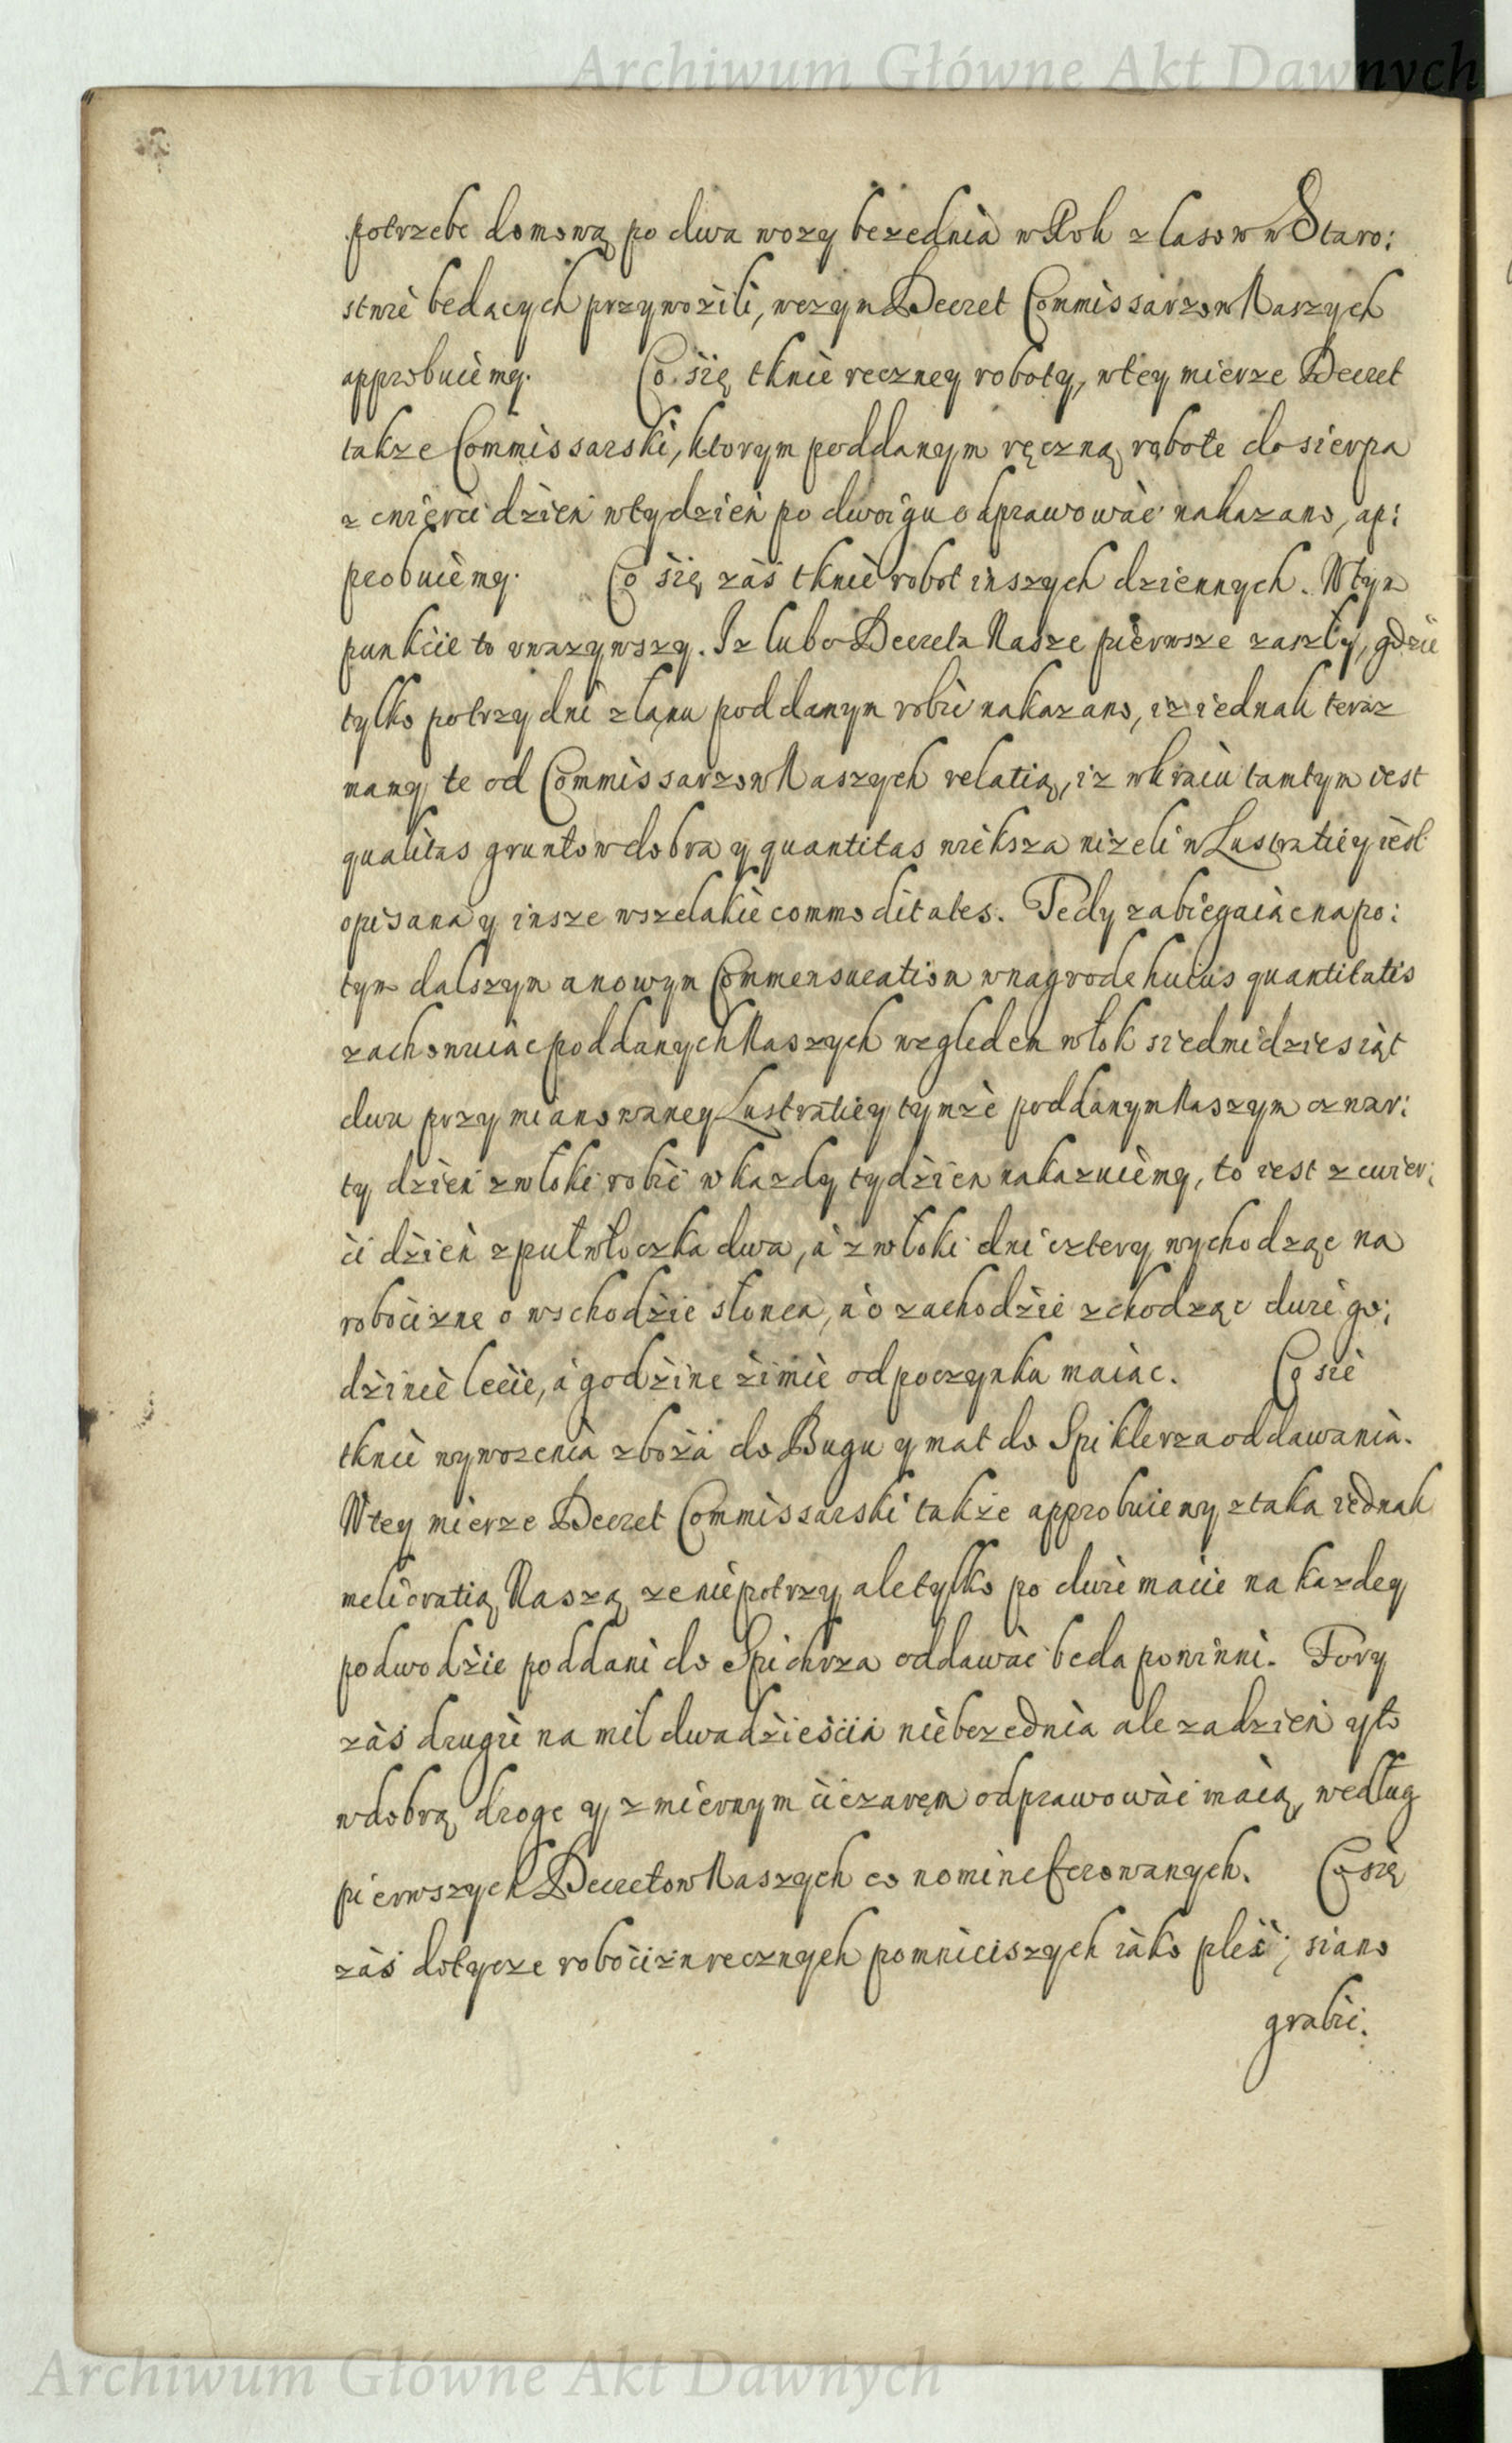 Archiwum Główne Akt Dawnych
potrzebe domową po dwa wozy bezednia w Rok z lasow w Staro:
stwie bedacych przywozili, wczym Decret Commissarzow Naszych
approbuiemy. Co się tknie reczney roboty, wtey mierze Decret
takze Commissarski, ktorym poddanym ręczną robote do sierpa
z cwierci dzień wtydzień po dwoigu odprawować nakazano, ap:
probuiemy. Co się záś tknie robot inszych dziennych. Wtym
punkcie to uwazywszy. Iz lubo Decreta Nasze pierwsze zaszły, gdzie
tylko potrzy dni złanu poddanym robić nakazano, iz iednak teraz
mamy te od Commissarzow Naszych relatią, iz wkraiu tamtym iest
qualitas gruntow dobra y quantitas wieksza nizeli w Lustratiey iest
opisana y insze wszelakie commoditates. Tedy zabiegaiąc napo:
tym dalszym anowym Commensuration wnagrode huius quantitatis
zachowuiąc poddanych Naszych wzgledem włok siedmidziesiąt
dwu przy mianowaney Lustratiey tymże poddanym Naszym czwar:
ty dzień zwłoki robić wkazdy tydzień nakazuiemy, to iest z cwier:
ci dzień zpułwłoczka dwa, á zwłoki dni cztery wychodząc na
robociznę o wschodzie słonca, á o zachodzie zchodząc dwie go:
dzinie lecie, á godzine zimie odpoczynku maiąc. Co sie
tknie wywozenia zboża do Bugu y mat do Spiklerza oddawania.
Wtey mierze Decret Commissarski także approbuiemy ztaka iednak
melioratią Naszą ze nie potrzy ale tylko po dwie macie na kazdey
podwodzie poddani do Spichrza oddawać beda powinni. Fory
záś drugie na mil dwadzieścia niebezednia ale zadzień yto
wdobrą droge y zmiernym ciezarem odprawować maią, według
pierwszych Decretow Naszych eo nomine ferowanych. Co się
záś dotycze robocizn recznych pomnieiszych iáko pleć, siano
grabić.
Archiwum Główne Akt Dawnych